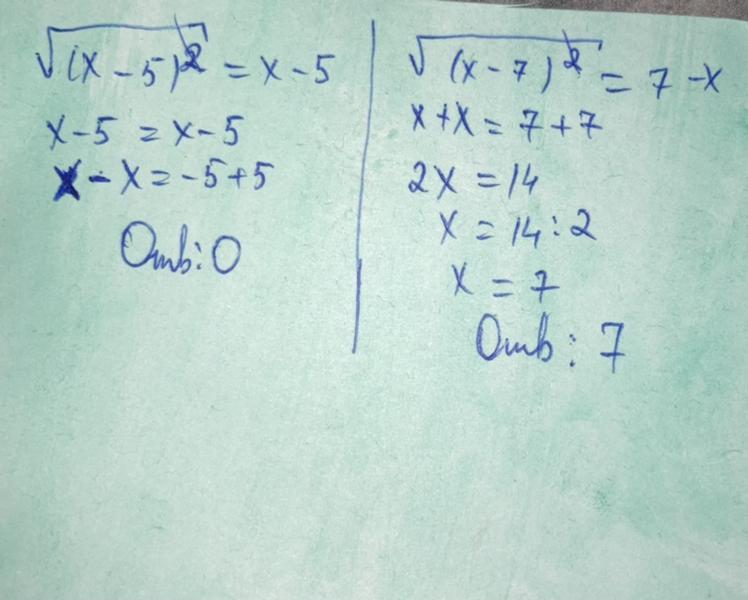 √(x-5)² = x-5
x-5 = x-5
x-x=-5+5
Отв: 0
√(x-7)² = 7-x
x+x = 7+7
2x = 14
x = 14:2
x = 7
Отв: 7